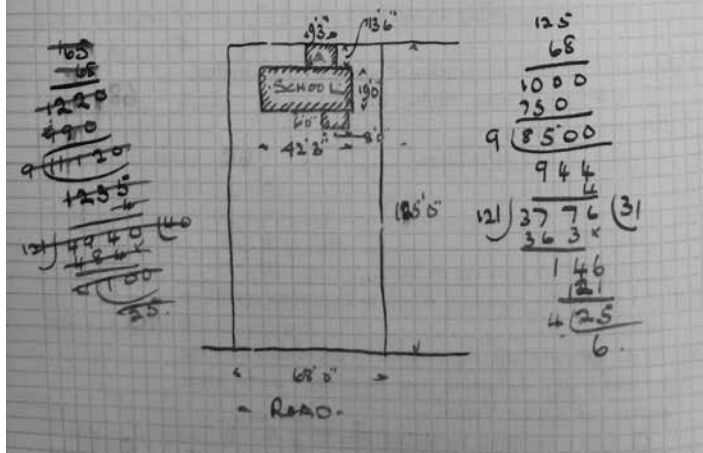 165
68
1220
990
9 11120
1235
4
121 4940 40
484x
100
25.
9'3" 13'6"
A
SCHOOL 19'0"
6'0" 8'0
42'3"
125'0"
68'0"
ROAD.
125
68
1000
750
9 8500
944
4
121 3776 31
363x
146
121
4 25
6.